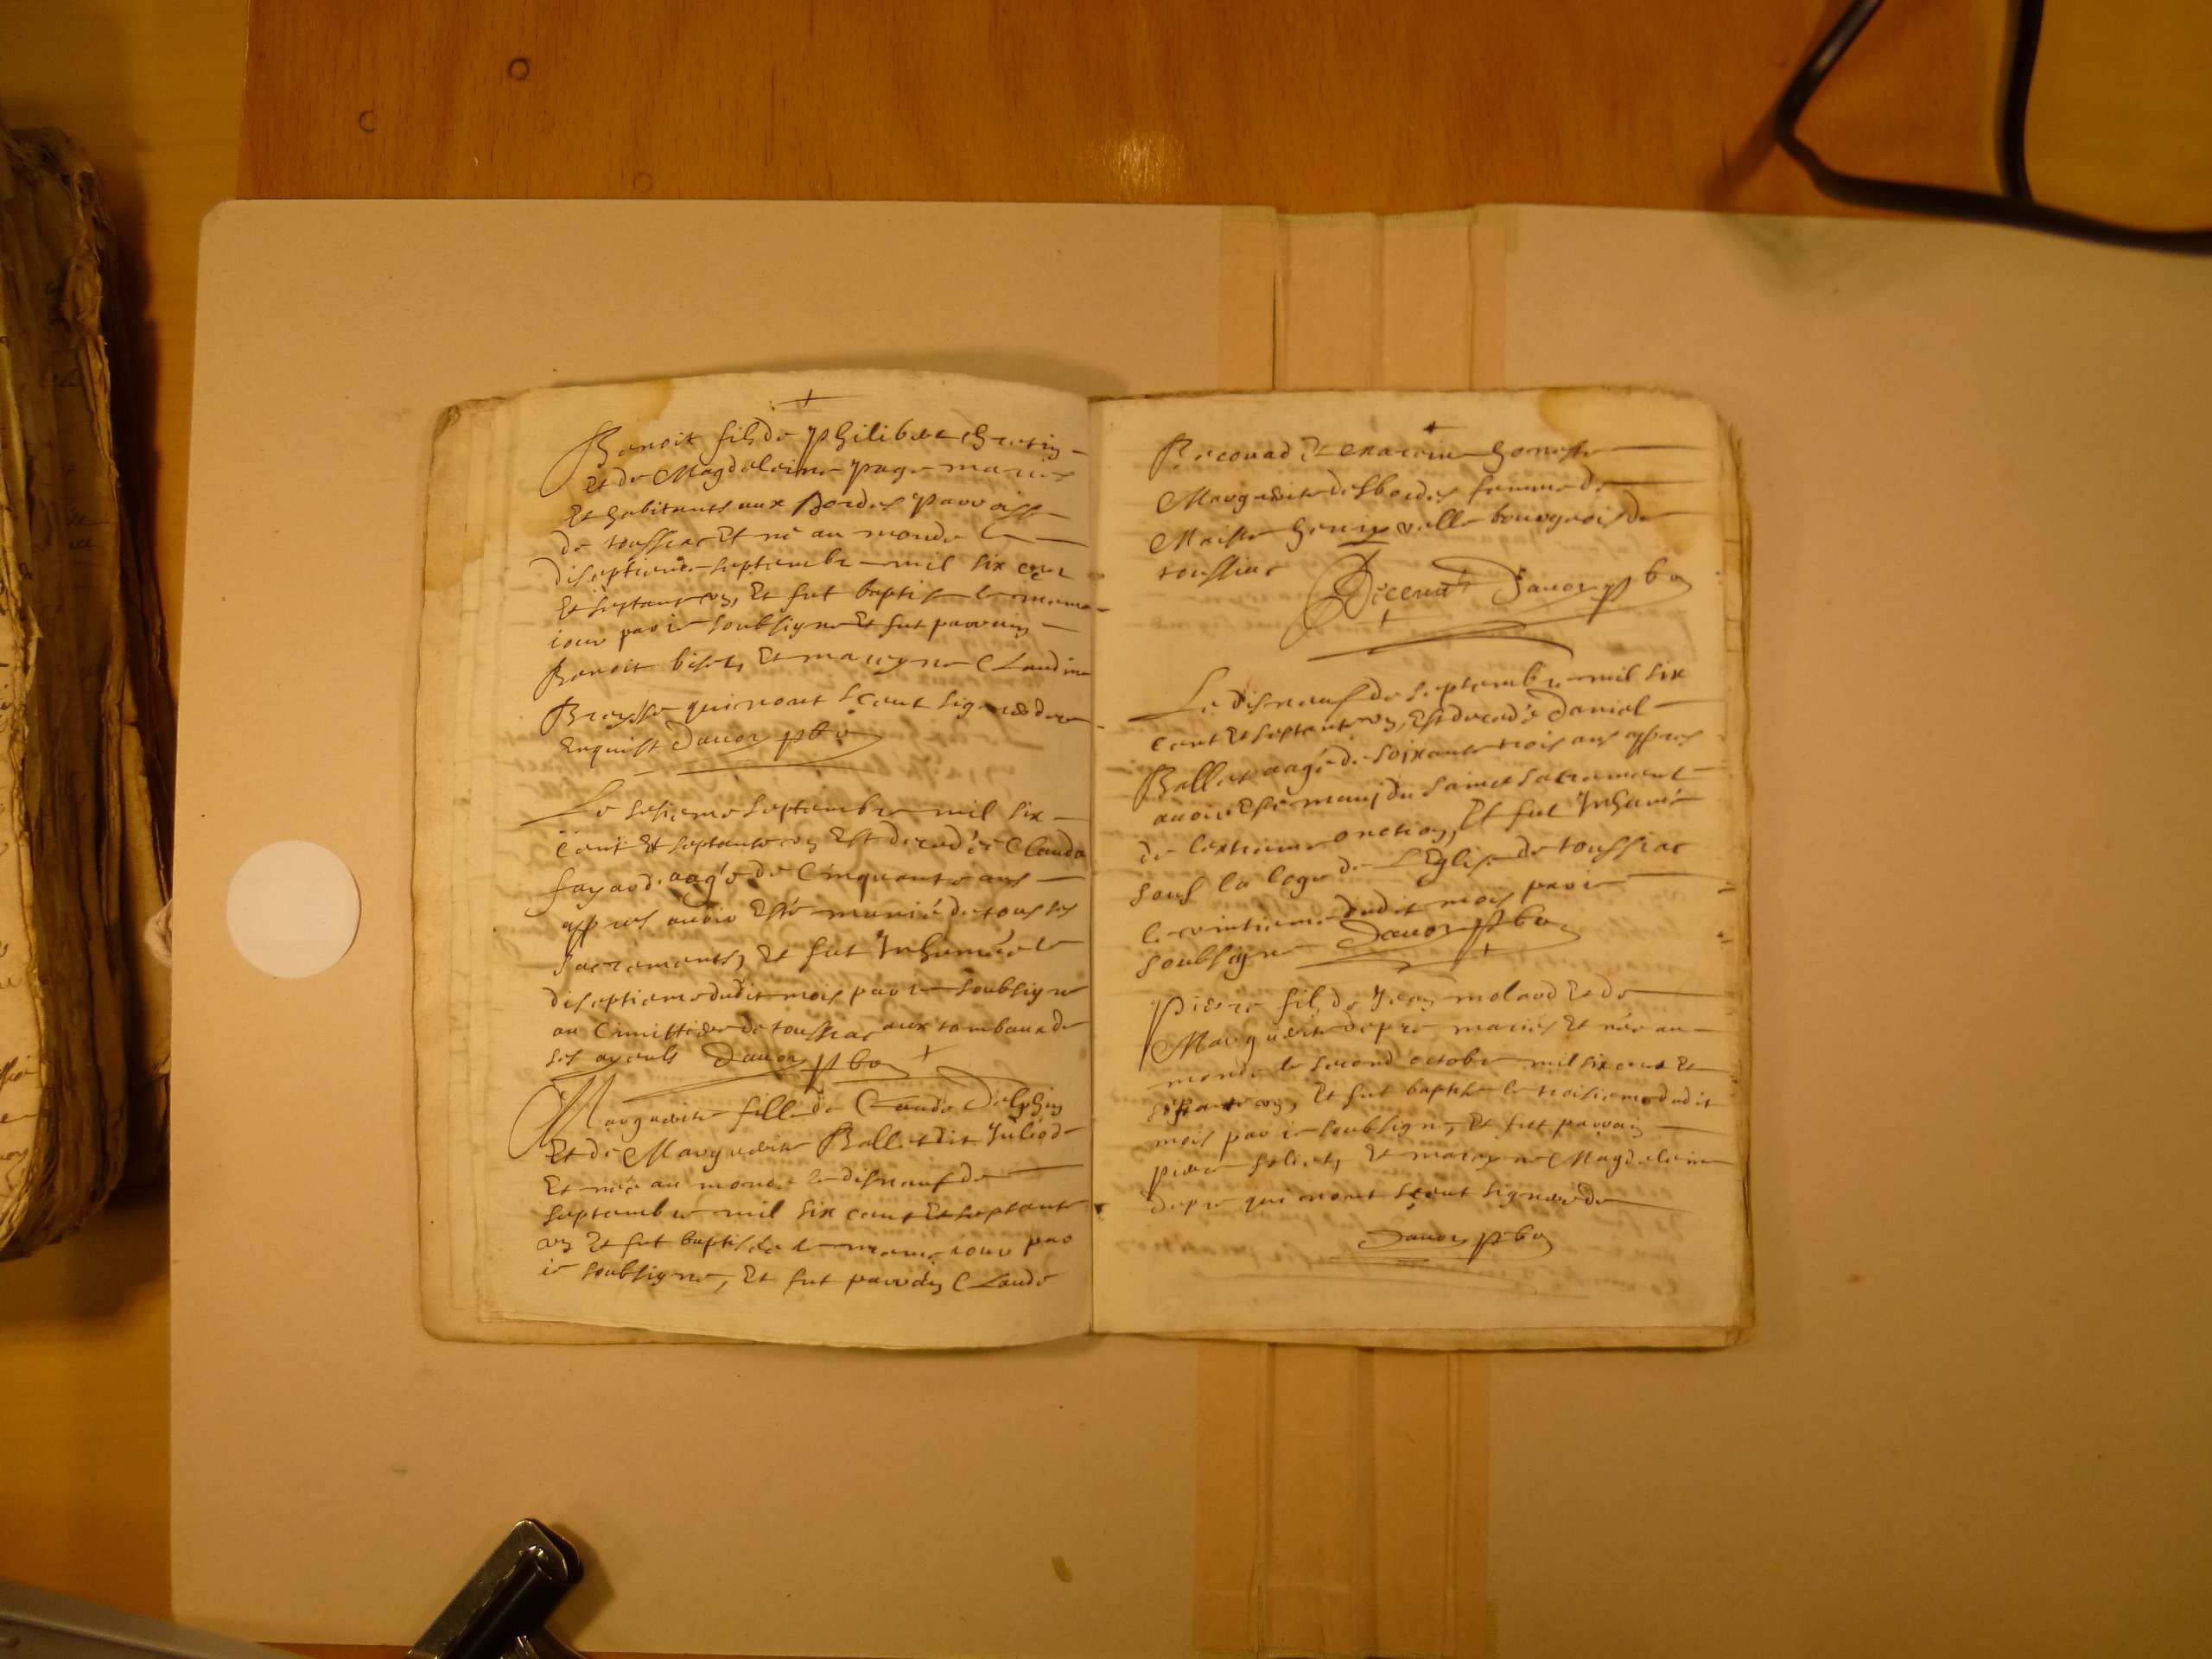 Benoit fils de philibert chrestin
Et de Magdeleine page mariés
Et habitants aux Bordes parroisse
de toussiac Et né au monde le
diseptieme septembre mil six cent
Et septante un, Et fut baptisé le mesme
iour par ie soubsigne Et fut parrain
Benoit bisot, Et mareyne Claudine
Breysse qui nont sceut signer de ce
Enquist Dauon pbr
Le sesieme septembre mil six
cent Et septante un Est decedé Claude
fayard aagé de Cinquante ans
appres avoir Esté munié de tous ses
sacrements, Et fut Inhumé le
diseptieme dudit mois par ie soubsigne
au Cimittiere de toussiac aux tombeaux de
ses ayeuls Dauon pbr
Marguerite fille de Claude Delphin
Et de Marguerite Ballet dit Juliod
Et née au monde le disneuf de
septembre mil six cent Et septante
un Et fut baptisée le mesme iour par
ie soubsigne, Et fut parrain Claude
Recouad Et mareine honeste
Marguerite desbordes femme de
Maistre henry velle bourgeois de
toussiac
Dauon pbr
Le disneuf de septembre mil six
cent Et septante un, Est decedé Daniel
Ballet aagé de soixante trois ans appres
avoir Esté muni du sainct sacrement
de lextreme onction, Et fut Inhumé
sous la loge de LEglise de toussiac
le vintieme dudit mois par ie
soubsigne Dauon pbr
Pierre fils de Jean molard Et de
Marguerite depre mariés Et née au
monde le second octobre mil six cent Et
septante un, Et fut baptisé le troisieme dudit
mois par ie soubsigne, Et fut parrain
pierre soliet, Et mareyne Magdeleine
depre qui nont sceut signer de
Dauon pbr